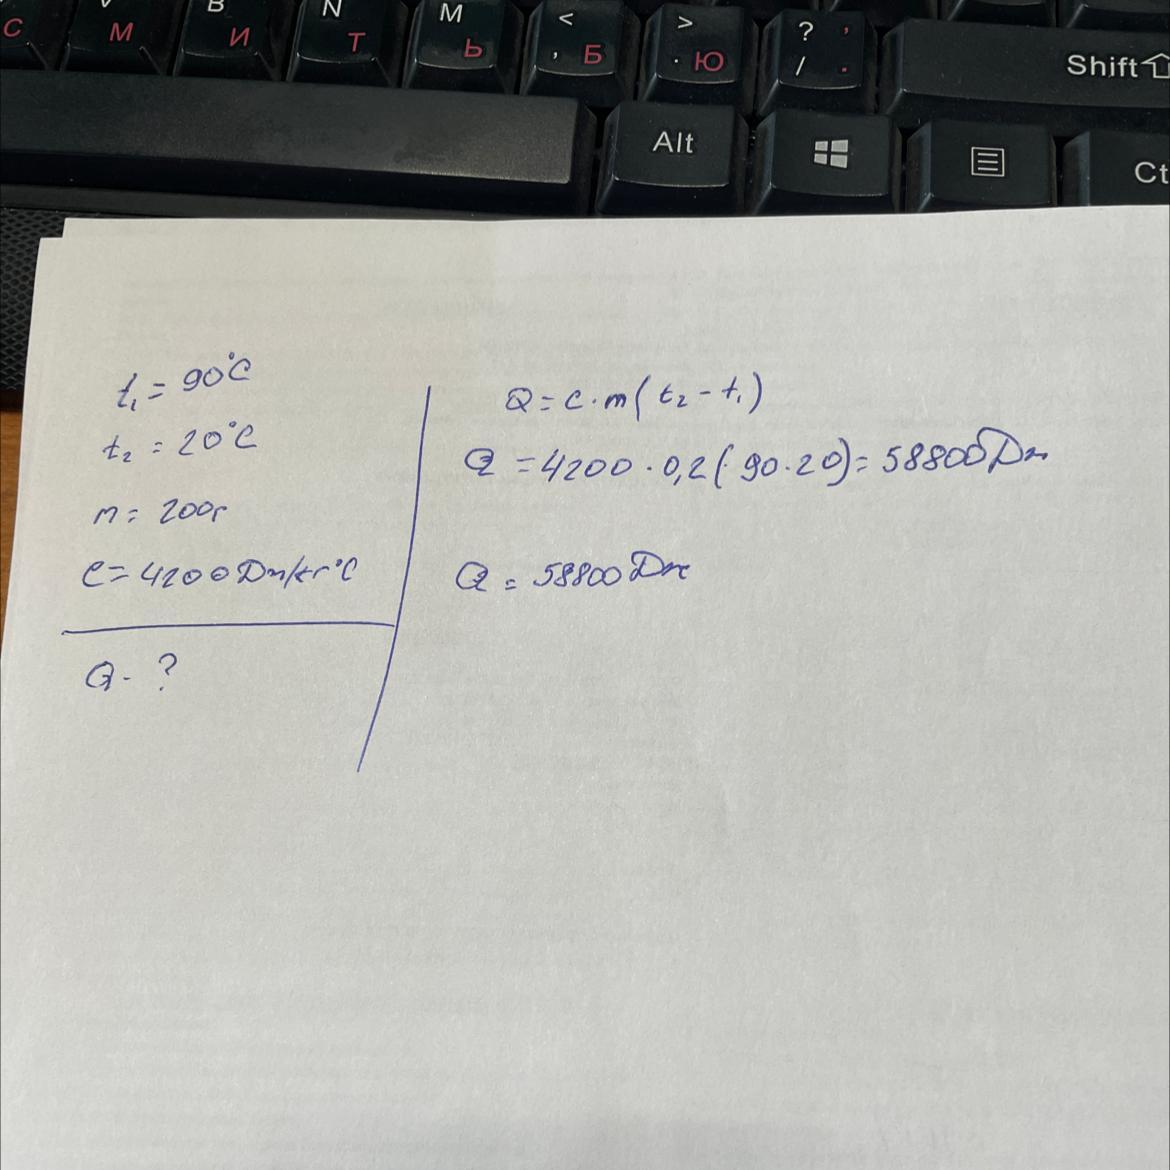 С V М B И N Т M Ь < , Б > . Ю ? , / . Shift
Alt Ct
t₁ = 90°C
t₂ = 20°C
m = 200г
c = 4200 Дж/кг°C
Q - ?
Q = c · m ( t₂ - t₁ )
Q = 4200 · 0,2 ( 90 · 20 ) = 58800 Дж
Q = 58800 Дж